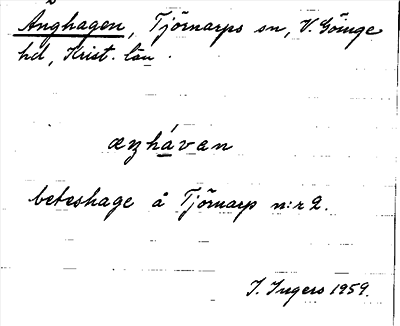 Änghagen, Tjörnarps sn, V. Göinge
hd, Krist. län.
æŋhávan
beteshage å Tjörnarp n:r 2.
I. Ingers 1959.